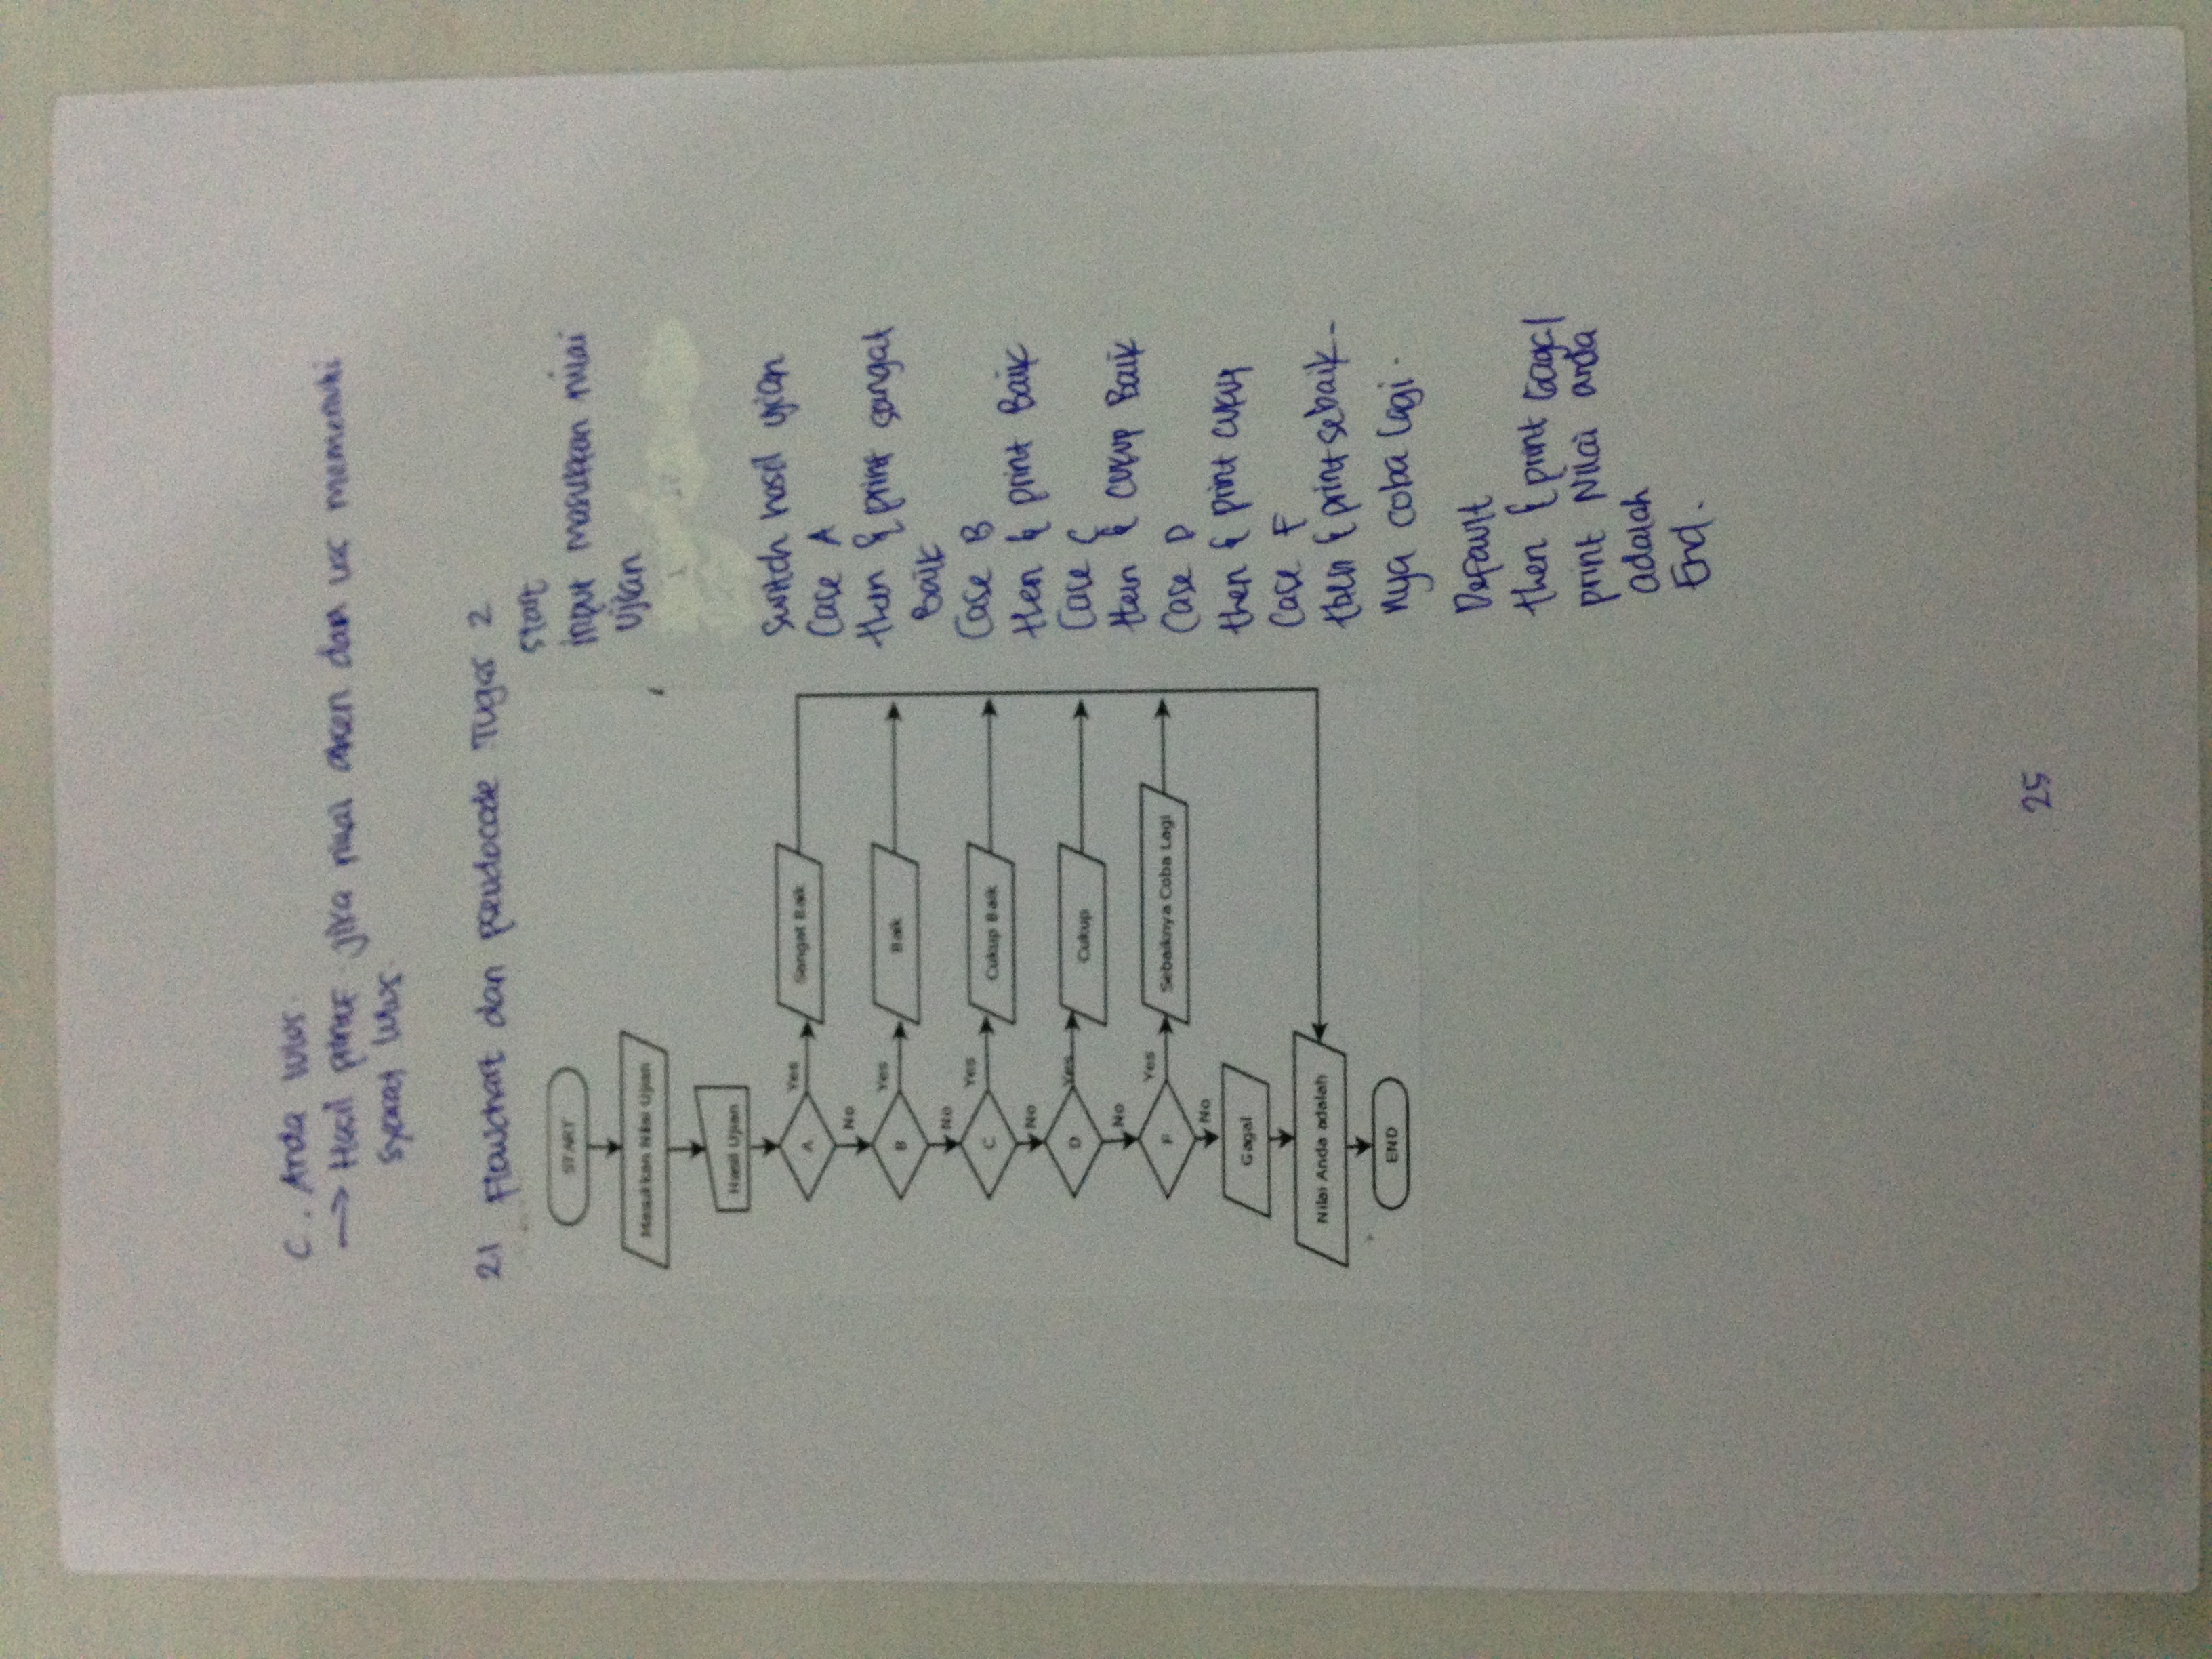 C. Anda lulus.
→ Hasil printf jika nilai absen dan uas memenuhi
syarat lulus.
21 Flowchart dan pseudocode Tugas 2
START
Masukkan Nilai Ujian
Hasil Ujian
A
Yes
Sangat Baik
No
B
Yes
Baik
No
C
Yes
Cukup Baik
No
D
Yes
Cukup
No
F
Yes
Sebaiknya Coba Lagi
No
Gagal
Nilai Anda adalah
END
start
input masukkan nilai
Ujian
Switch hasil ujian
Case A
then { print sangat
Baik
Case B
then { print Baik
Case C
then { Cukup Baik
Case D
then { print cukup
Case F
then { print sebaik-
nya coba lagi.
Default
then { print Gagal
print Nilai anda
adalah
End.
25